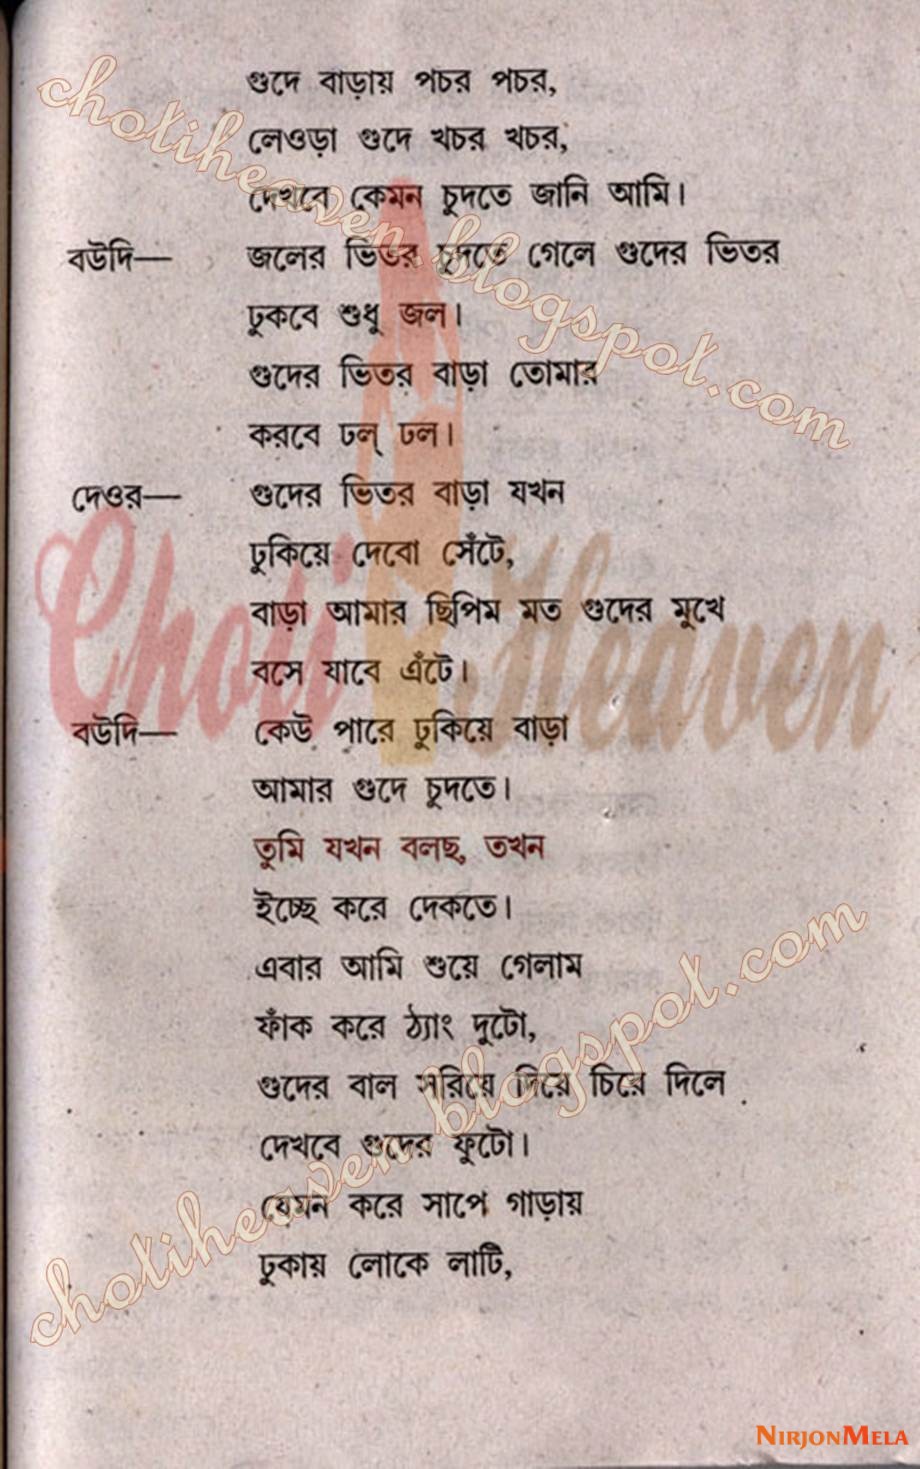 গুদে বাড়ায় পচর পচর,
লেওড়া গুদে খচর খচর,
দেখবে কেমন চুদতে জানি আমি।
বউদি— জলের ভিতর চুদতে গেলে গুদের ভিতর
ঢুকবে শুধু জল।
গুদের ভিতর বাড়া তোমার
করবে ঢল্ ঢল।
দেওর— গুদের ভিতর বাড়া যখন
ঢুকিয়ে দেবো সেঁটে,
বাড়া আমার ছিপিম মত গুদের মুখে
বসে যাবে এঁটে।
বউদি— কেউ পারে ঢুকিয়ে বাড়া
আমার গুদে চুদতে।
তুমি যখন বলছ, তখন
ইচ্ছে করে দেকতে।
এবার আমি শুয়ে গেলাম
ফাঁক করে ঠ্যাং দুটো,
গুদের বাল সরিয়ে দিয়ে চিরে দিলে
দেখবে গুদের ফুটো।
যেমন করে সাপে গাড়ায়
ঢুকায় লোকে লাটি,
chotiheaven.blogspot.com
Choti Heaven
chotiheaven.blogspot.com
NIRJONMELA